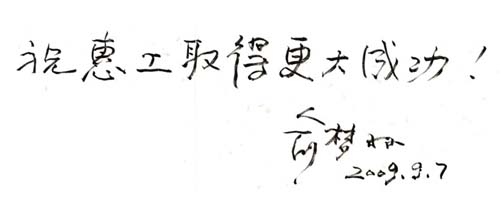 祝惠工取得更大成功！
俞梦孙
2009.9.7